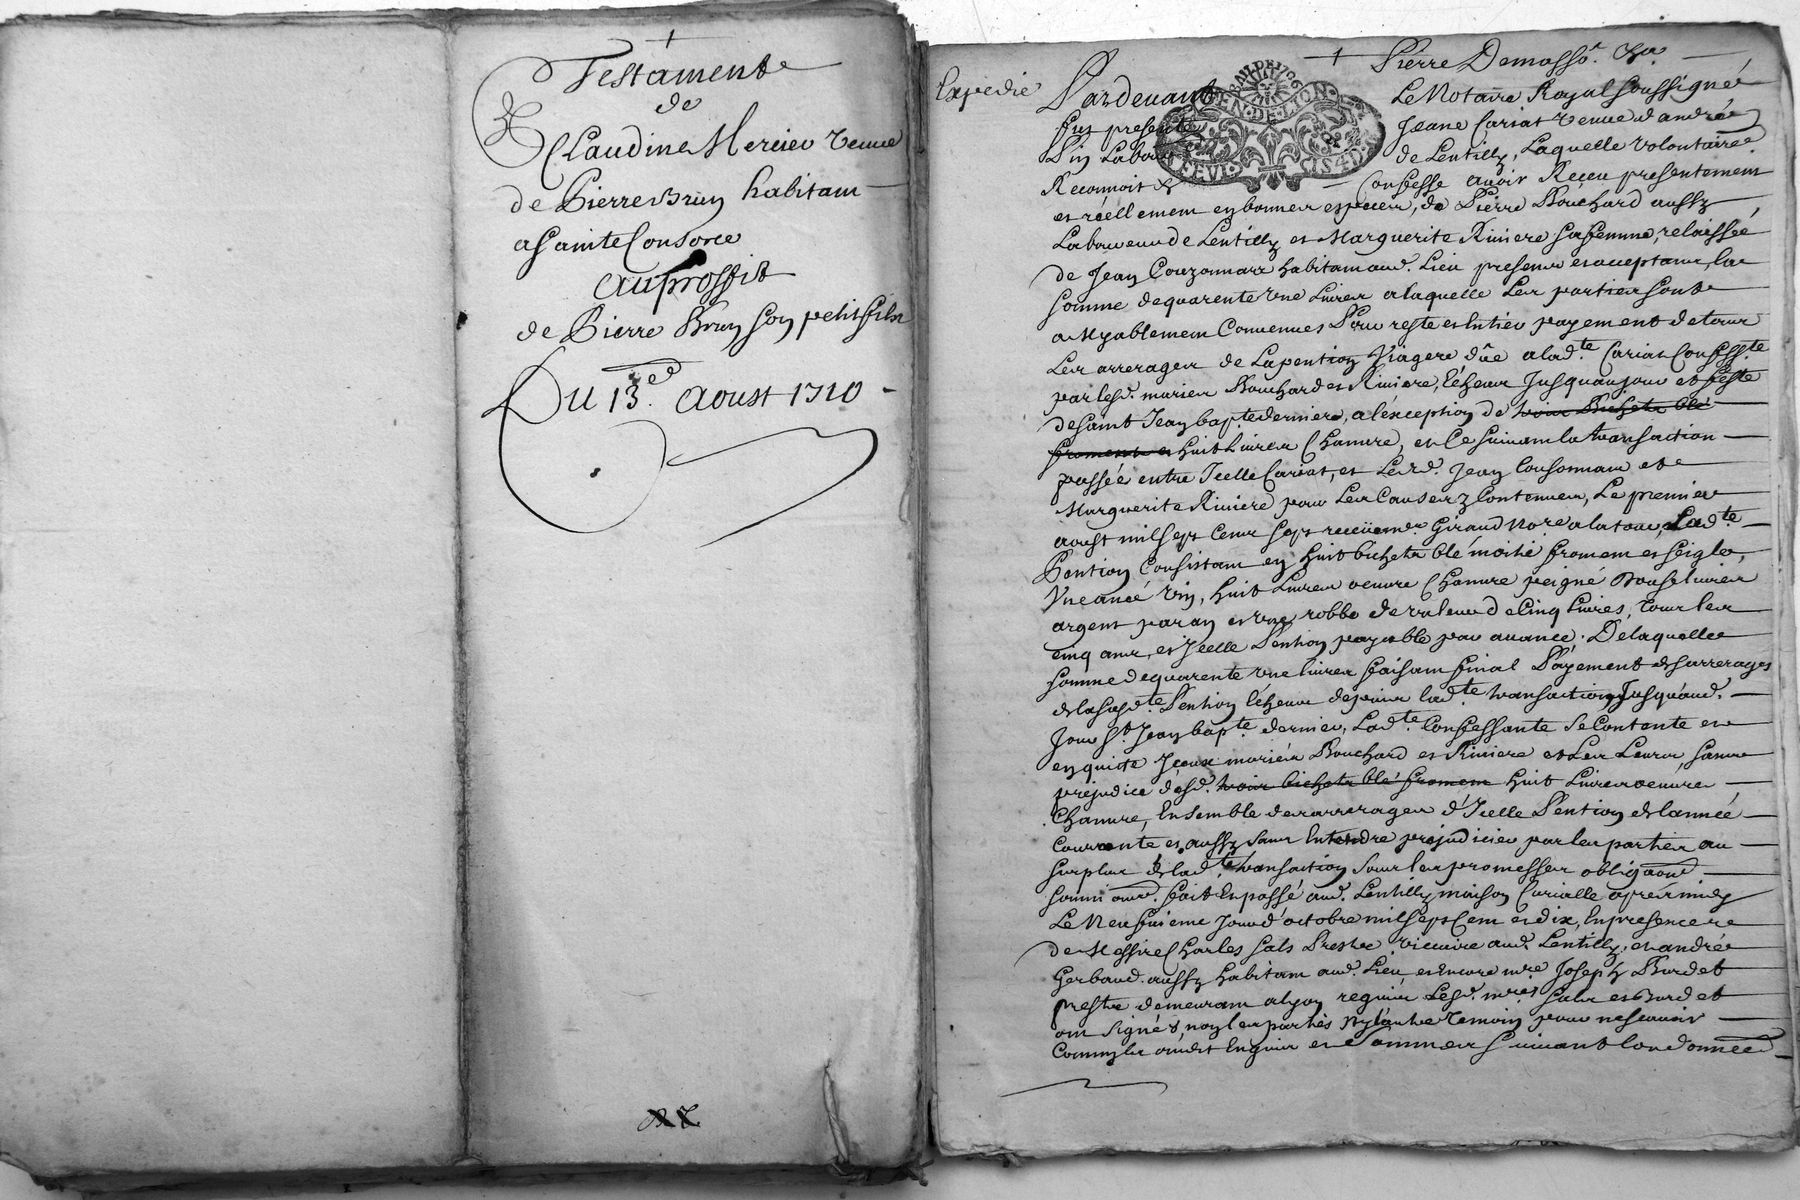 Testament
de
Claudine Mercier veuve
de Pierre Brun habitant
a Sainte Consorce
au proffit
de Pierre Brun son petit fils
Du 13.e Aoust 1710
Expedié
Pardevant Le Notaire Royal soussigné
fut presente Jeane Cariat veuve d'andré
de Lentilly, Laquelle volontaire
Reconnoit & Confesse avoir Receu presentement
et réellement en bonnes especes, de Pierre Bouchard aussy
Laboureur de Lentilly et Marguerite Riviere sa femme, relaissée
de Jean habitans aud. Lieu presens et acceptans, la
somme de quarente une Livres a laquelle Les parties sont
amyablement Convenues Pour reste et Entier payement de tous
Les arrerages de La pention Viagere dûe a lad.te Cariat Confess.te
par lesd. mariés Bouchard et Riviere, échus Jusqu'au jour et feste
de saint Jean bap.te dernier, a l'exception de trois Bichets blé
froment et huit Livres Chanvre, et Ce suivant la transaction
passée entre Icelle Cariat, et Led. Jean et
Marguerite Riviere pour Les Causes y Contenues, Le premier
aoust mil sept Cent sept receüe par m.e Giraud No.re a la tour, Lad.te
Pention Consistant en huit bichets blé moitié froment et seigle,
Une anée vin, huit Livres oeuvre Chanvre peigné Douse livres
argent par an et une robbe de valeur de Cinq Livres, tous les
cinq ans, et Icelle Pention payable par avance. De laquelle
somme de quarente une livres faisant final Payement des arrerages
de la susd.te Pention échus depuis lad.te transaction Jusqu'aud.
Jour S.t Jean bap.te dernier, Lad.te Confessante se Contente et
en quitte Iceux mariés Bouchard et Riviere et Les Leurs, sans
prejudice desd. trois bichets blé froment huit Livres oeuvre
Chanvre, Ensemble des arrerages d'Icelle Pention de l'année
Courante et aussy sans Entendre prejudicier par les parties au
surplus de lad.te transaction sous les promesses obligaons
soumi ons. fait Et passé aud. Lentilly maison Curialle aprés midy
Le Neufvieme Jour d'octobre mil sept Cent et dix, En presence
de Messire Charles Sals Prestre Viccaire aud. Lentilly, et andré
Gerbaud aussy habitant aud. Lieu, et Encore m.re Joseph Burdet
prestre demeurant a lyon requis Lesd. m.res Sals et Burdet
ont signé & non les parties Ny l'autre Temoin pour ne scavoir
Comm'ils ont dit Enquis et Sommés suivant l'ordonnce